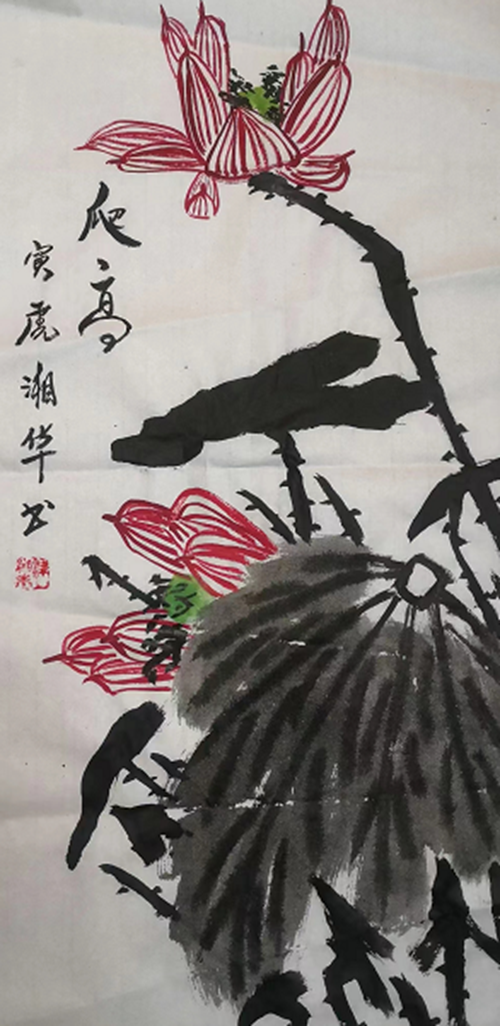 爬高
寅虎湘华书